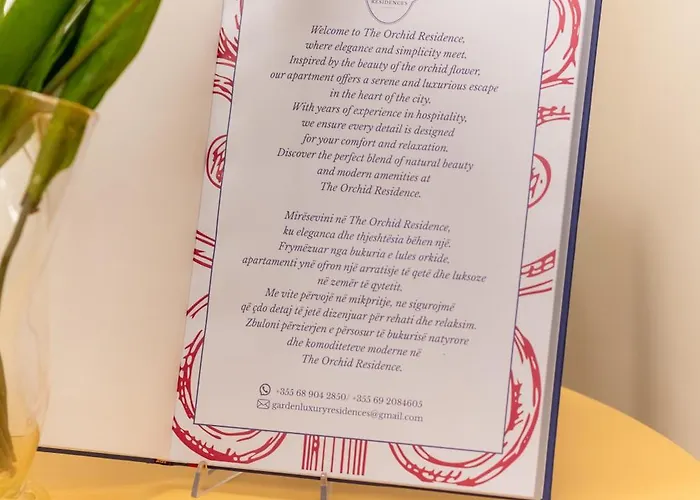 RESIDENCES
Welcome to The Orchid Residence,
where elegance and simplicity meet.
Inspired by the beauty of the orchid flower,
our apartment offers a serene and luxurious escape
in the heart of the city.
With years of experience in hospitality,
we ensure every detail is designed
for your comfort and relaxation.
Discover the perfect blend of natural beauty
and modern amenities at
The Orchid Residence.
Mirësevini në The Orchid Residence,
ku eleganca dhe thjeshtësia bëhen një.
Frymëzuar nga bukuria e lules orkide,
apartamenti ynë ofron një arratisje të qetë dhe luksoze
në zemër të qytetit.
Me vite përvojë në mikpritje, ne sigurojmë
që çdo detaj të jetë dizenjuar për rehati dhe relaksim.
Zbuloni përzierjen e përsosur të bukurisë natyrore
dhe komoditeteve moderne në
The Orchid Residence.
+355 68 904 2850/ +355 69 2084605
gardenluxuryresidences@gmail.com